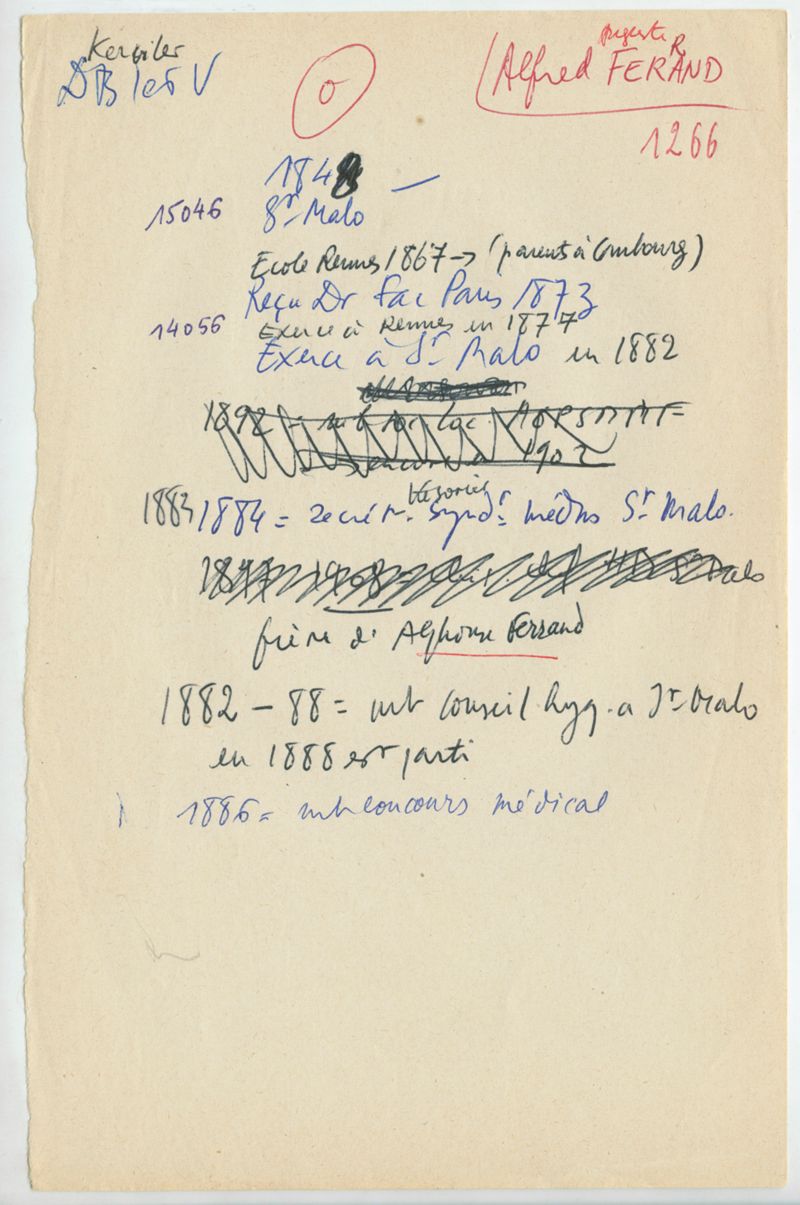 Kerviler
Auguste R
Alfred FERAND
DB 1et V
0
1266
1848 —
15046 St Malo
Ecole Rennes 1867 → (parents à Combourg)
Reçu Dr Fac Paris 1873
14056 Exerce à Rennes en 1877
Exerce à St Malo en 1882
1892 = mb soc loc.
1902
trésorier
1883 1884 = secrét. Synd. médns St Malo.
1908 St Malo
frère d' Alphonse Ferrand
1882 - 88 = mb conseil hyg. a St Malo
en 1888 est parti
1886 = mb concours médical